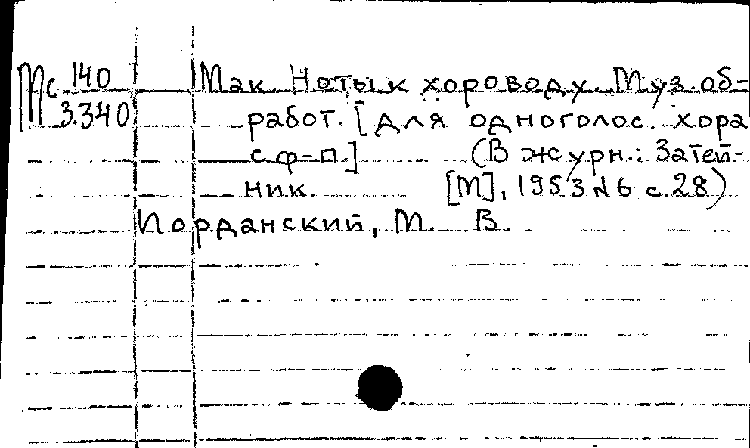 Мс 140 Мак Ноты к хороводу. Муз. об-
3.340 работ. [для одноголос. хора
с ф-п.] (В журн.: Затей-
ник. [М], 1953 №6 с. 28)
Иорданский, М. В.